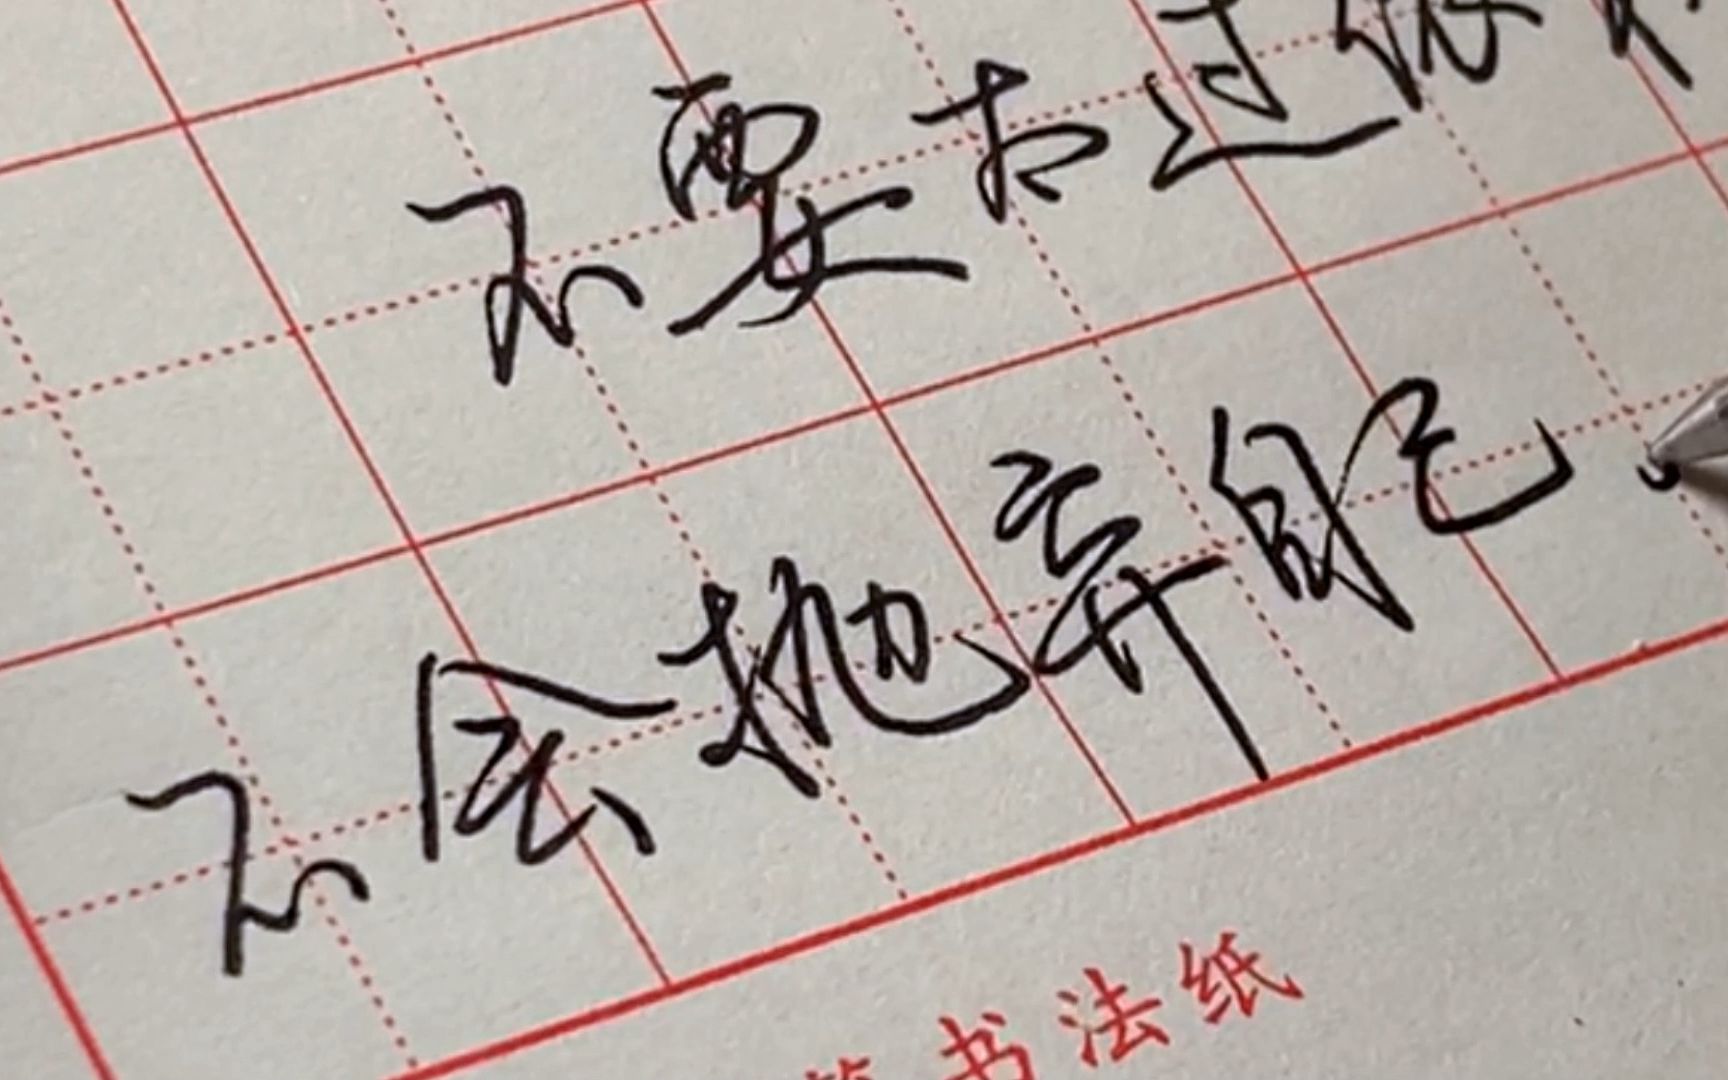 不要太过依
不会抛弃自己
书法纸